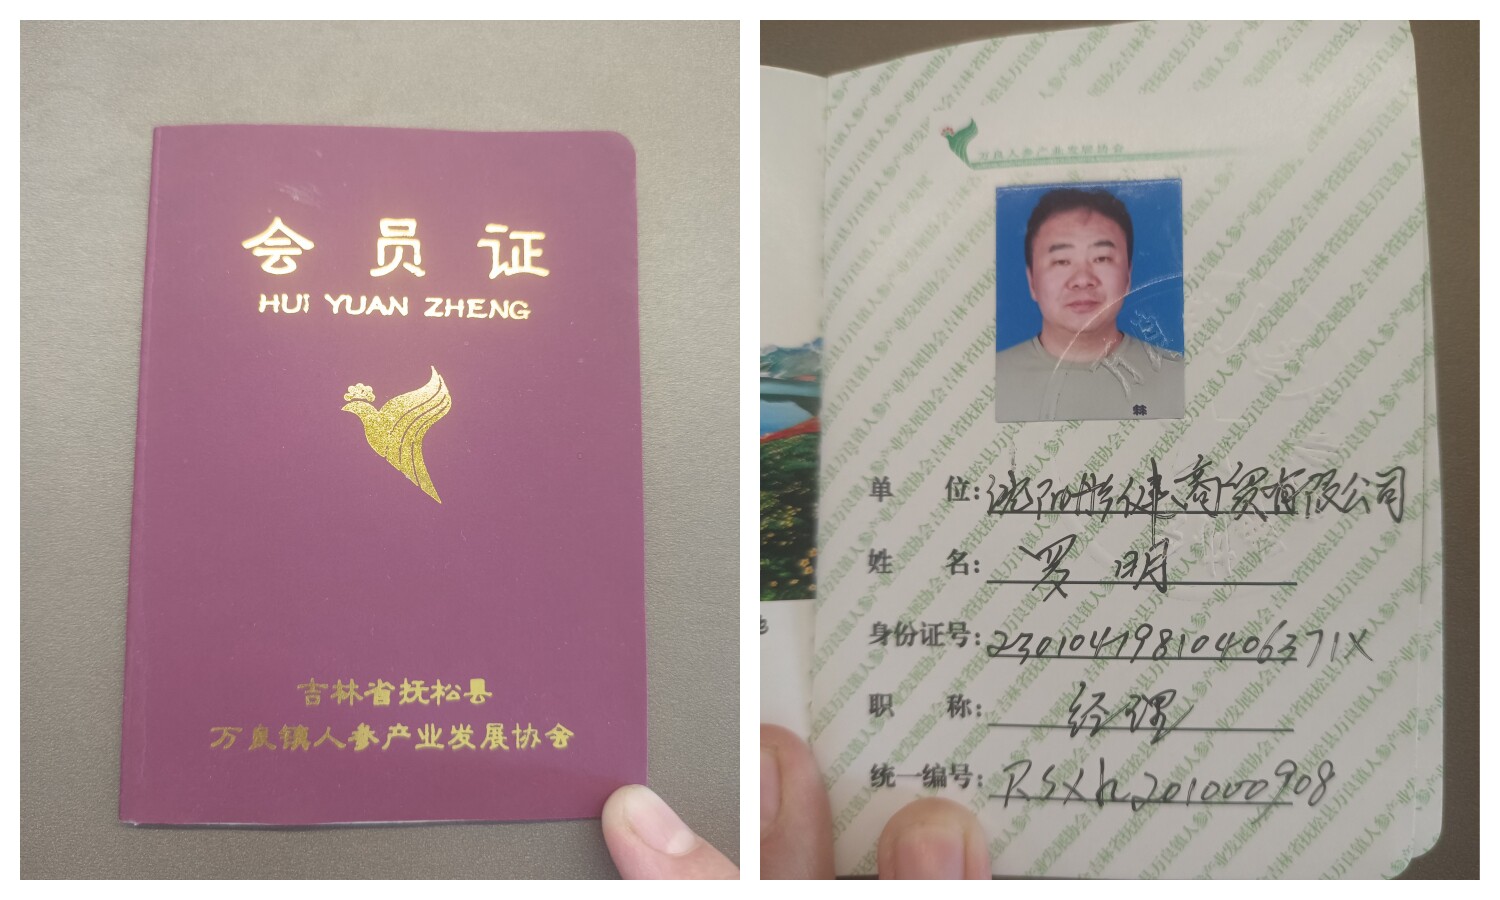 会员证
HUI YUAN ZHENG
吉林省抚松县
万良镇人参产业发展协会
万良人参产业发展协会
单 位: 沈阳 健商贸有限公司
姓 名: 罗明
身份证号: 23010419810406371X
职 称: 经理
统一编号: RSXh201000908